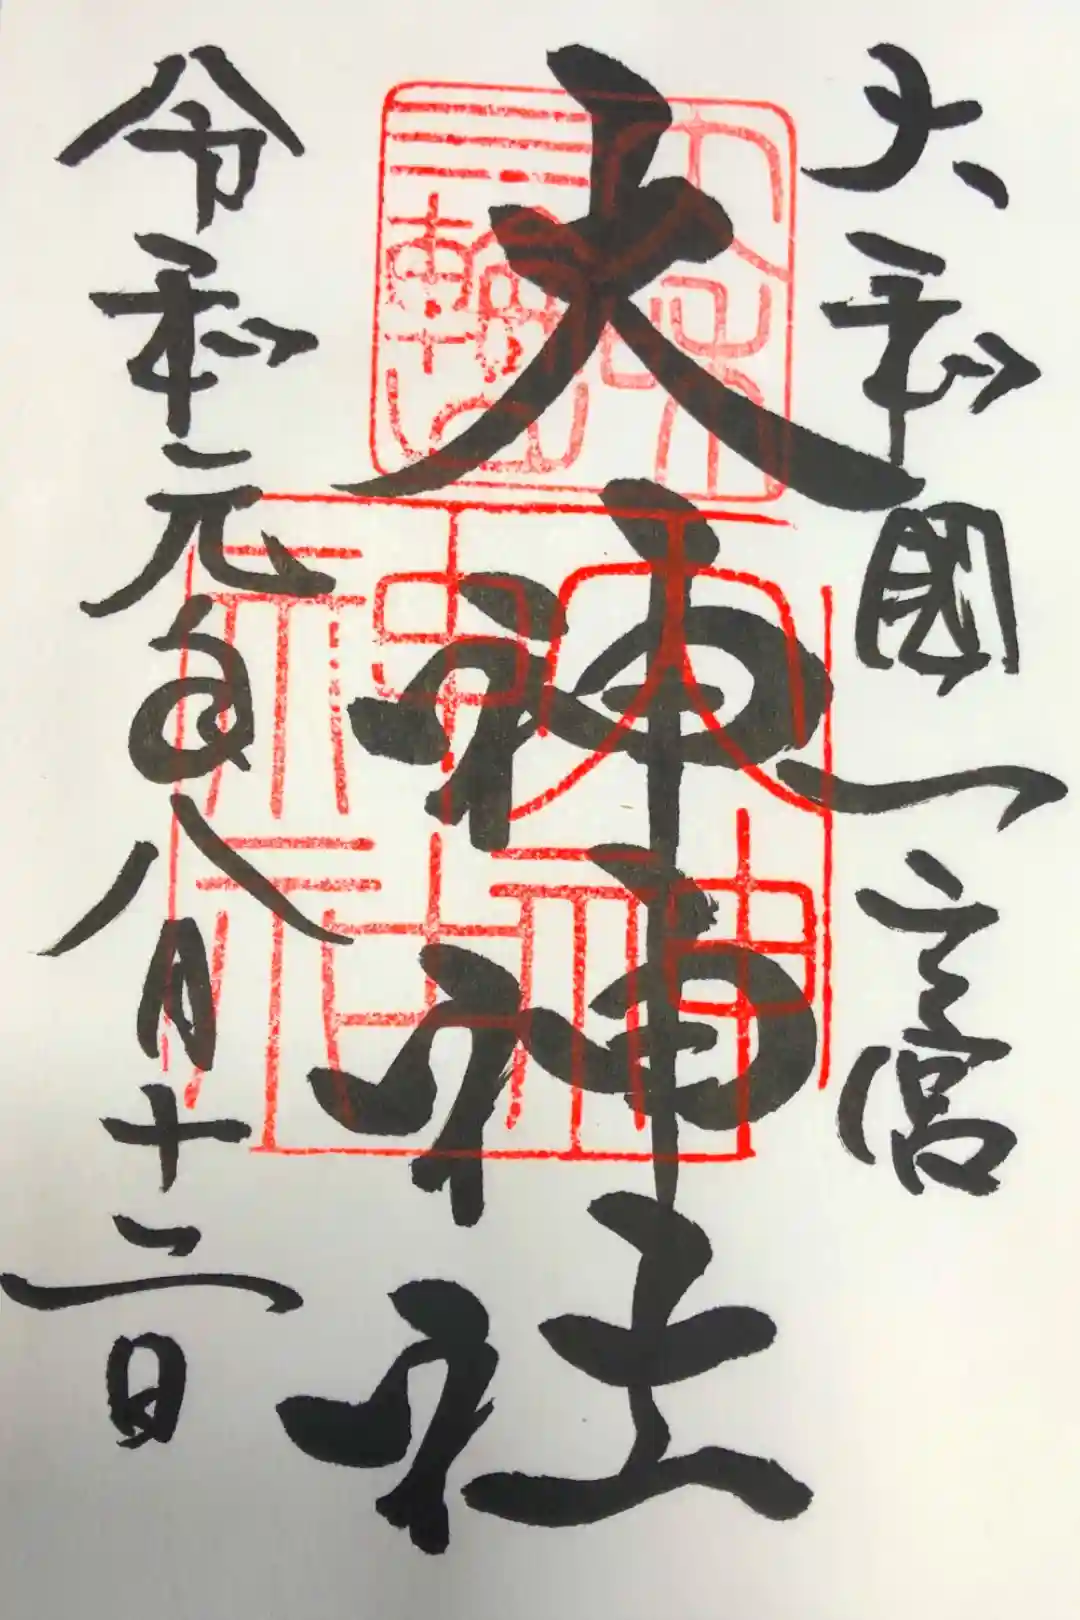 大和國一宮
大神神社
令和元年八月十二日
三輪山
大神神社